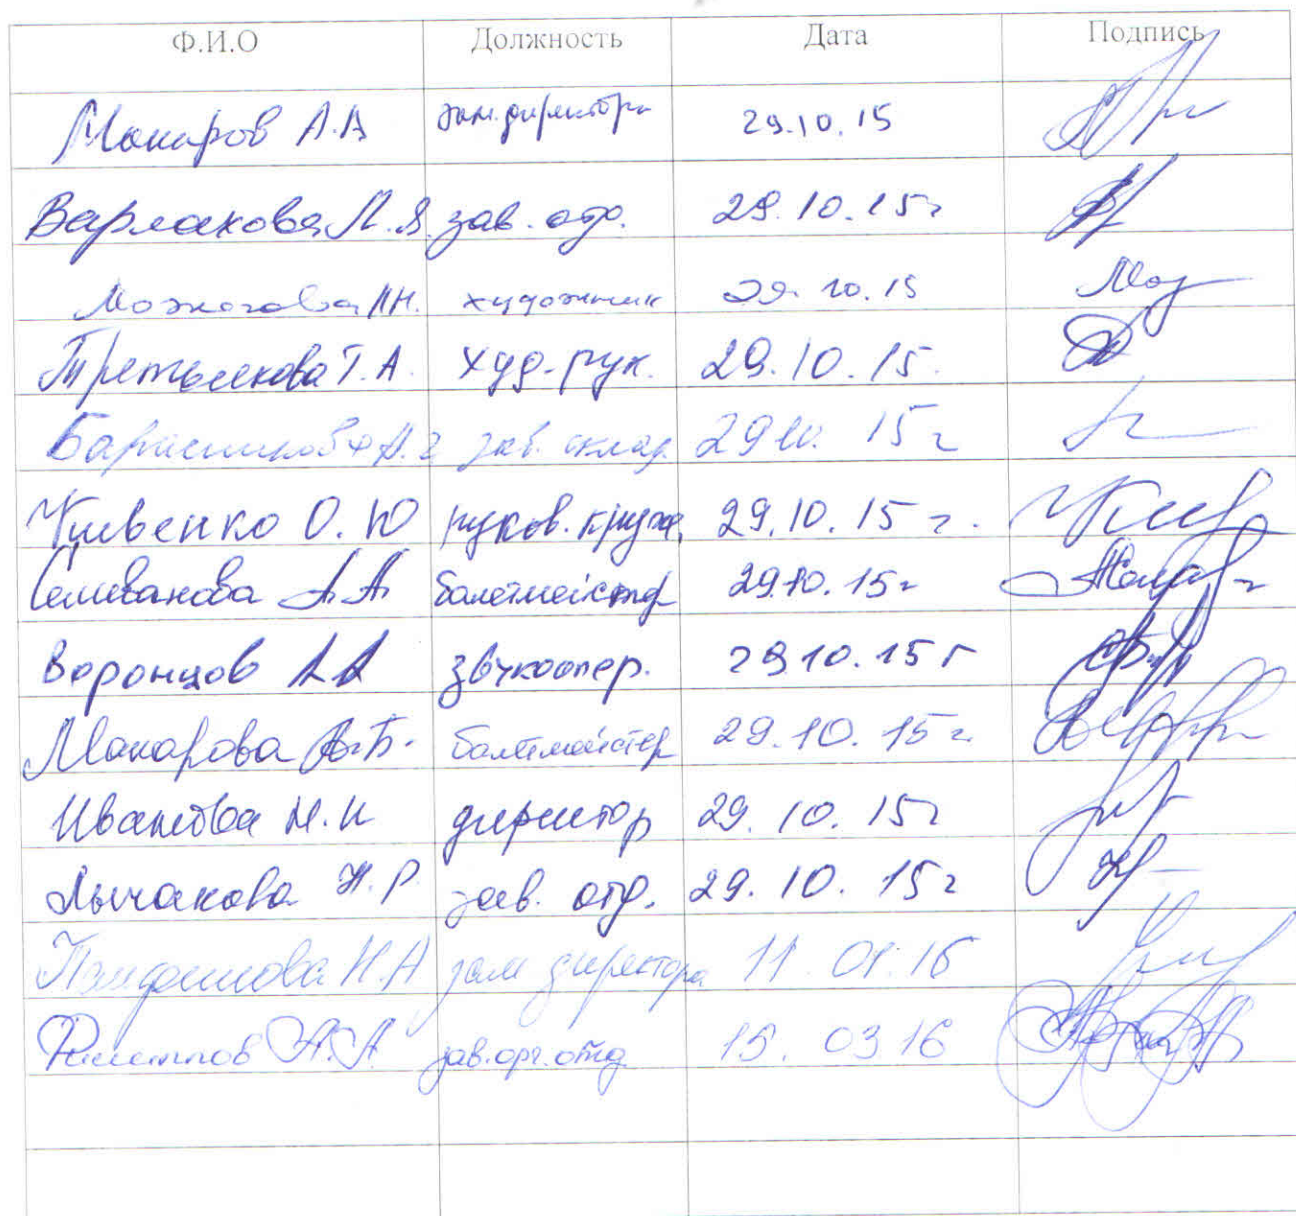 Ф.И.О Должность Дата Подпись
Макаров А.А зам.директора 29.10.15
Варлакова Л.Я. зав. отд. 29.10.15г
Можегова Н. художник 29.10.15
Третьякова Т.А. худ-рук. 29.10.15.
зав. склад. 29 10. 15г
Чивенко О.Ю руков. круж. 29.10.15г.
Селиванова А.А балетмейстер 29.10.15г
Воронцов А.А звукоопер. 29.10.15г
Макарова В.Б. балетмейстер 29.10.15г
Иванова Н.И директор 29.10.15г
Лычакова Н.Р. зав. отд. 29.10.15г
Н.А зам директора 11.01.16
Филиппов А.А зав.орг.отд 15.03 16